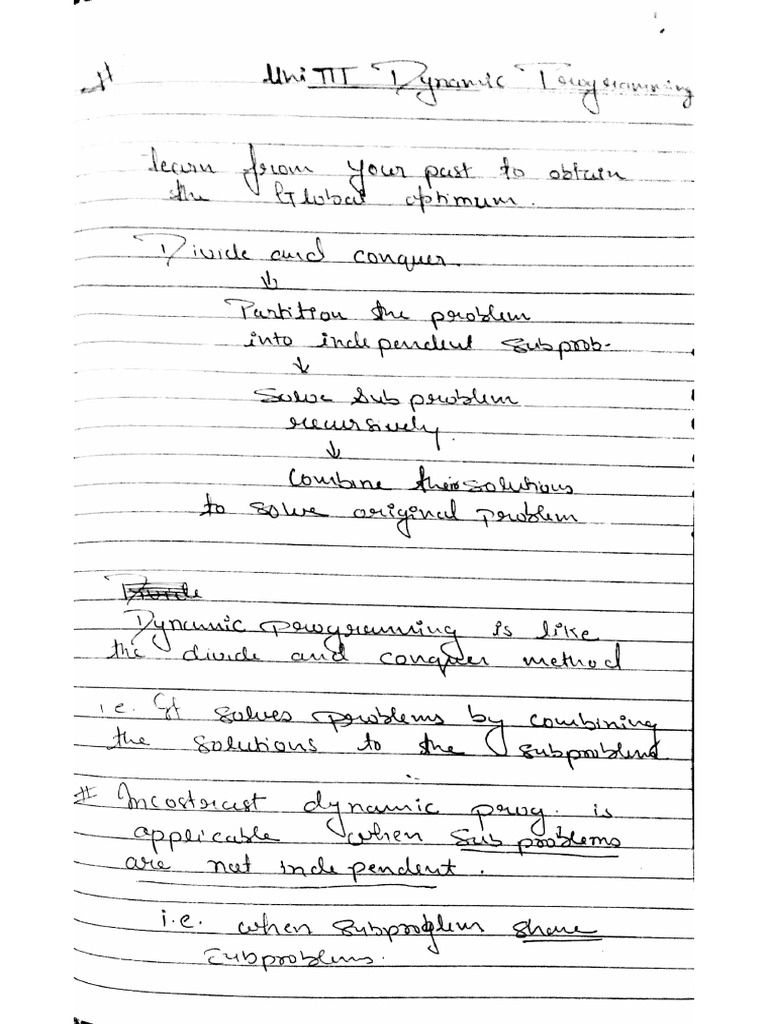 Uni III Dynamic Programming
learn from your past to obtain
the Global optimum.
Divide and conquer.
↓
Partition the problem
into independent subprob-
↓
Solve Sub problem
recursively.
↓
Combine their solutions
to solve original problem
Divide
Dynamic programming is like
the divide and conquer method
i.e. It solves problems by combining
the solutions to the subproblems
# Incostrast dynamic prog. is
applicable when sub problems
are not independent.
i.e. when subproblem share
subproblems.